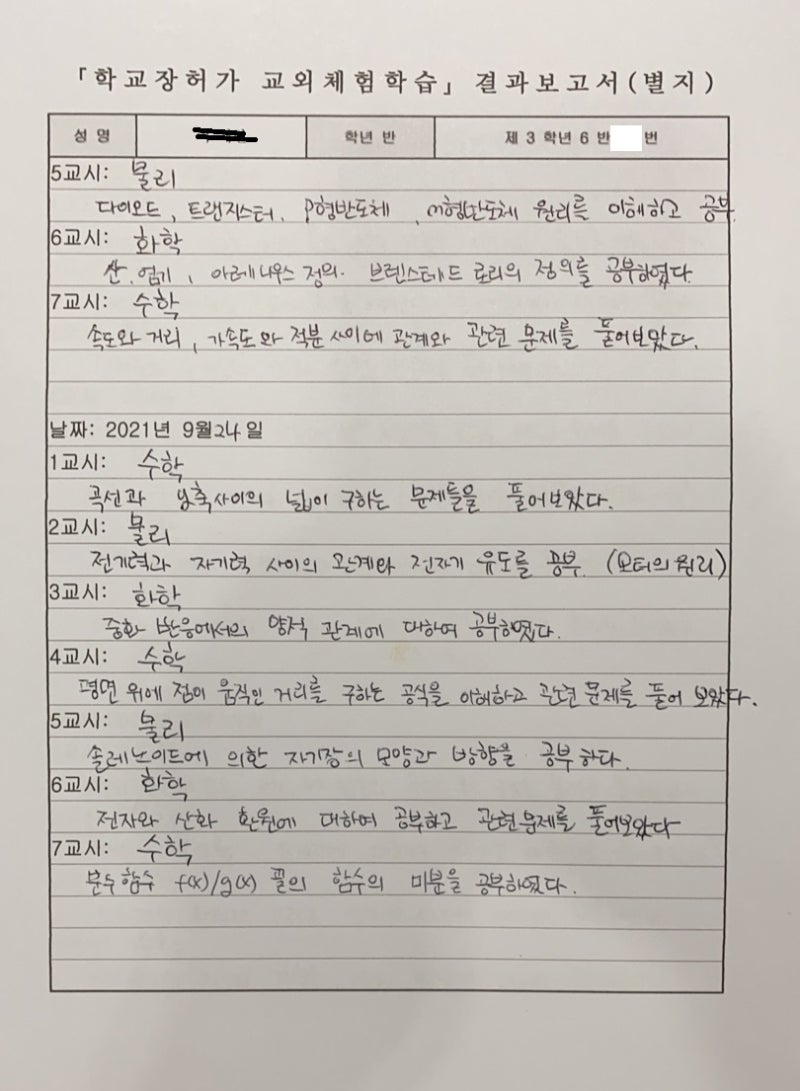 「학교장허가 교외체험학습」 결과보고서(별지)
성 명 학년 반 제 3 학년 6 반 번
5교시: 물리
다이오드, 트랜지스터, P형반도체, n형반도체 원리를 이해하고 공부.
6교시: 화학
산, 염기, 아레니우스 정의. 브뢴스테드 로리의 정의를 공부하였다.
7교시: 수학
속도와 거리, 가속도와 적분 사이에 관계와 관련 문제를 풀어보았다.
날짜: 2021년 9월24일
1교시: 수학
곡선과 y축사이의 넓이 구하는 문제들을 풀어보았다.
2교시: 물리
전기력과 자기력 사이의 관계와 전자기 유도를 공부. (모터의 원리)
3교시: 화학
중화 반응에서의 양적 관계에 대하여 공부하였다.
4교시: 수학
평면 위에 점이 움직인 거리를 구하는 공식을 이해하고 관련 문제를 풀어 보았다.
5교시: 물리
솔레노이드에 의한 자기장의 모양과 방향을 공부하다.
6교시: 화학
전자와 산화 환원에 대하여 공부하고 관련문제를 풀어보았다
7교시: 수학
분수함수 f(x)/g(x) 꼴의 함수의 미분을 공부하였다.